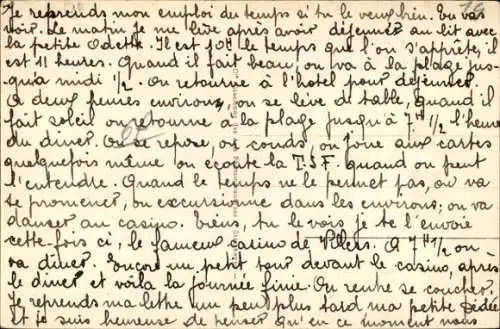 Je reprends mon emploi du temps si tu le veux bien. Tu vas
voir. Le matin je me lève après avoir déjeuner au lit avec
la petite Odette. Il est 10h le temps que l'on s'apprête, il
est 11 heures. Quand il fait beau, on va à la plage jus-
qu'à midi 1/2. On retourne à l'hotel pour déjeuner.
A deux heures environ, on se lève de table, quand il
fait soleil on retourne à la plage jusqu'à 7h 1/2 l'heure
du diner. On se repose, on couds, on joue aux cartes
quelquefois même on écoute la T.S.F. quand on peut
l'entendre. Quand le temps ne le permet pas, on va
se promener, on excursionne dans les environs, on va
danser au casino. Tiens, tu le vois je te l'envoie
cette fois ci, le fameux casino de Villers. A 7h 1/2 on
va diner. Encore un petit tour devant le casino, après
le diner et voilà la journée finie. On rentre se coucher.
Je reprends ma lettre un peu plus tard ma petite Dédée
et je suis heureuse de penser qu'en ce moment nous